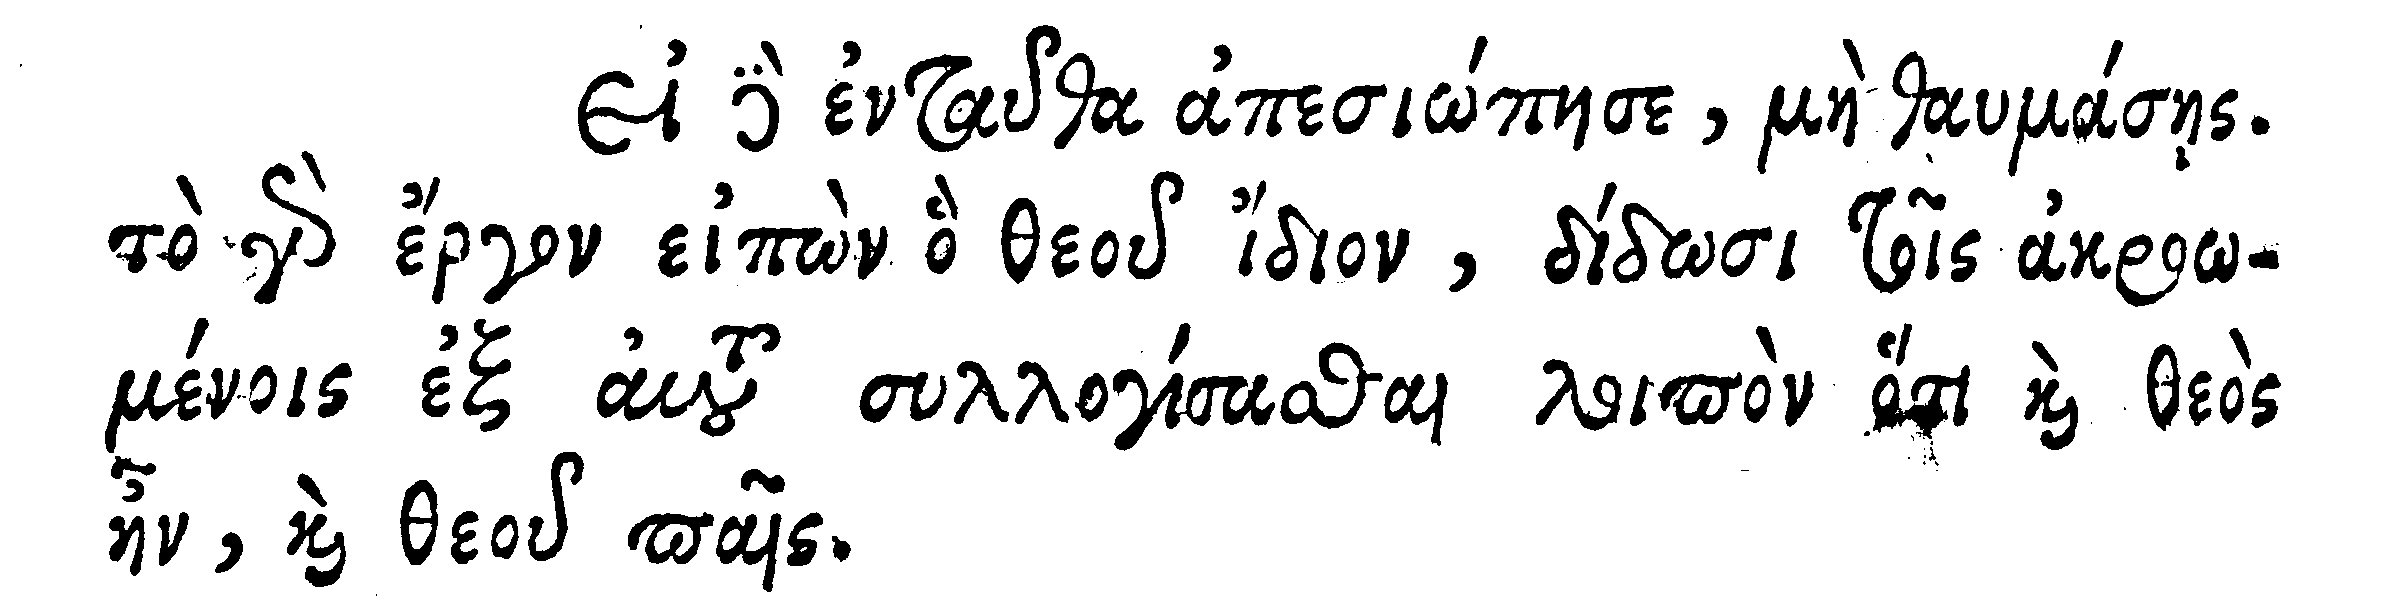 Εἰ δὲ ἐνταῦθα ἀπεσιώπησε, μὴ θαυμάσῃς.
τὸ γὰρ ἔργον εἰπὼν ὃ θεοῦ ἴδιον, δίδωσι τοῖς ἀκροω-
μένοις ἐξ αὐτοῦ συλλογίσασθαι λοιπὸν ὅτι καὶ θεὸς
ἦν, καὶ θεοῦ παῖς.